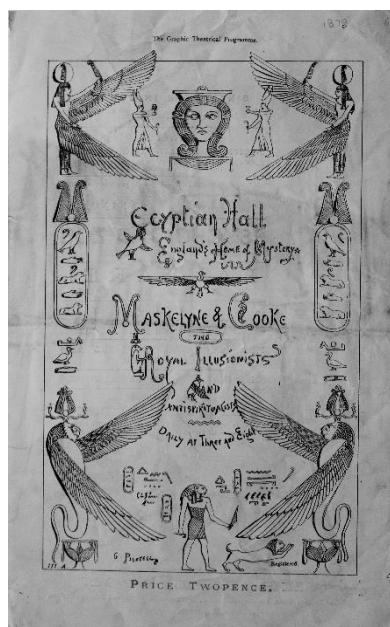 1878
The Graphic Theatrical Programme.
Egyptian Hall
England's Home of Mystery
Maskelyne & Cooke
THE
Royal Illusionists
AND
ANTISPIRITUALISTS
DAILY AT Three AND Eight
Registered
PRICE TWOPENCE.